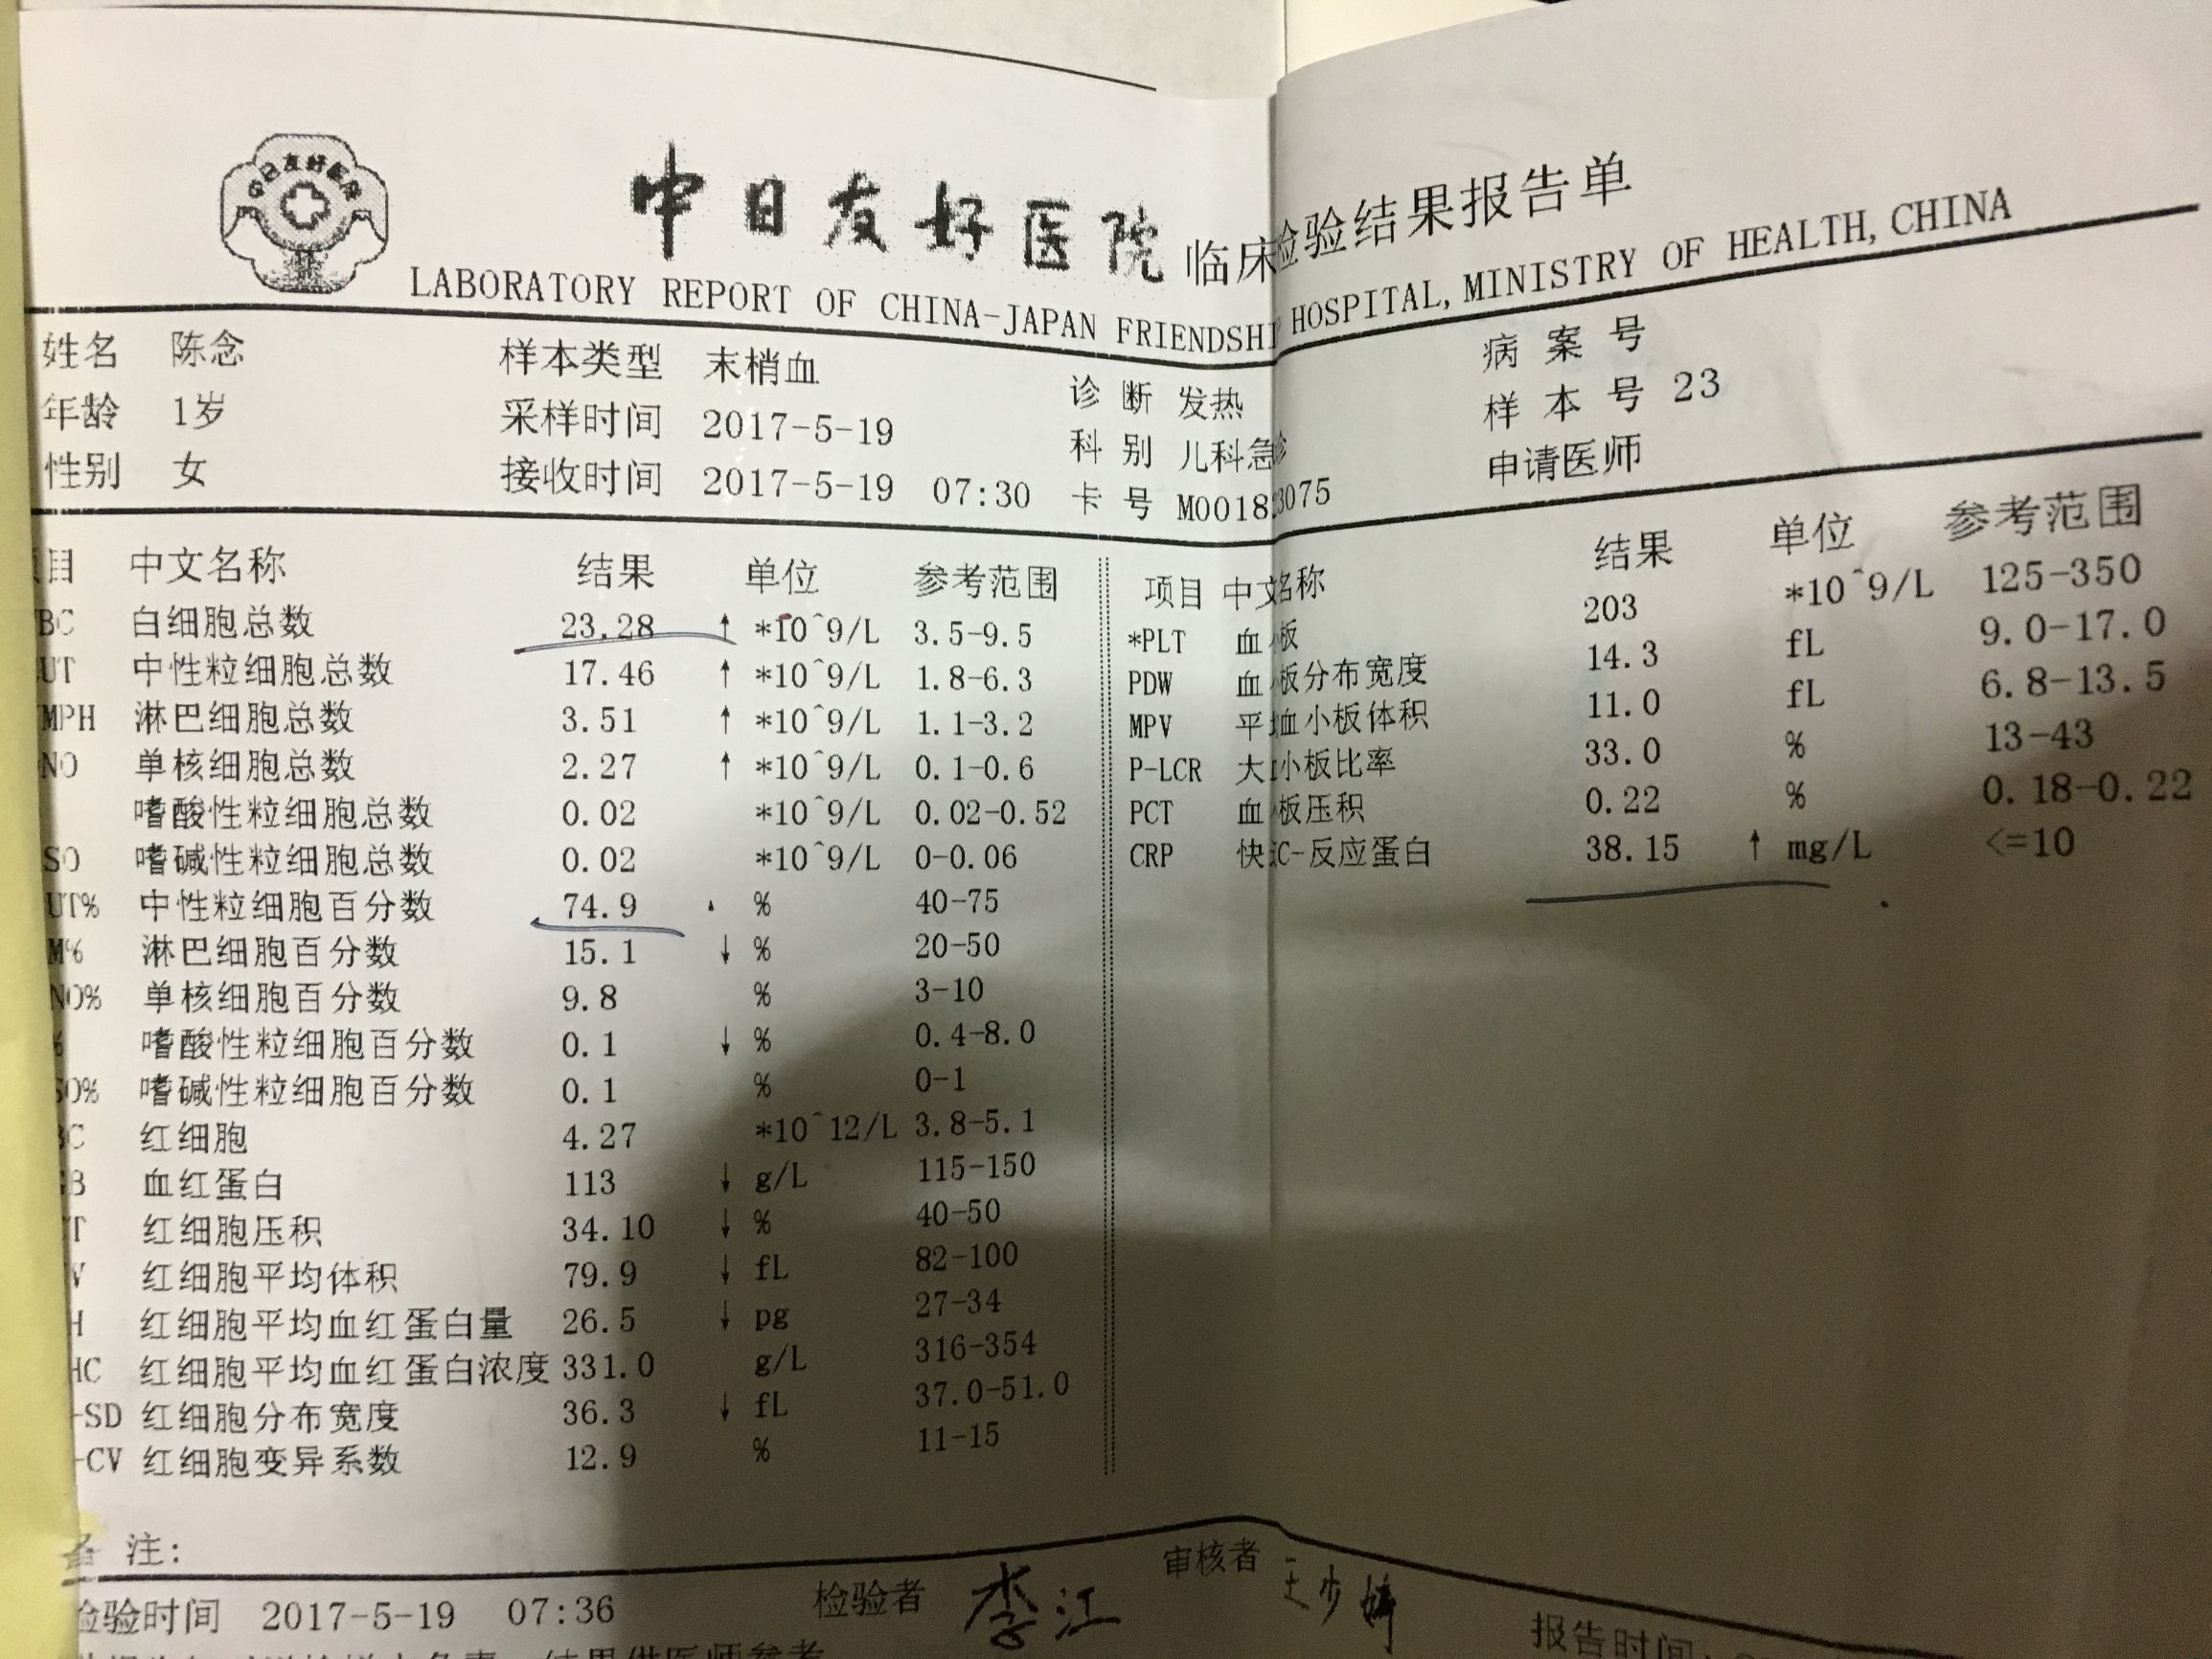 中日友好医院 临床检验结果报告单
LABORATORY REPORT OF CHINA-JAPAN FRIENDSHI HOSPITAL, MINISTRY OF HEALTH, CHINA
姓名 陈念 样本类型 末梢血 诊断 发热 病案号
年龄 1岁 采样时间 2017-5-19 科别 儿科急诊 样本号 23
性别 女 接收时间 2017-5-19 07:30 卡号 M001823075 申请医师
目 中文名称 结果 单位 参考范围
BC 白细胞总数 23.28 ↑ *10^9/L 3.5-9.5
UT 中性粒细胞总数 17.46 ↑ *10^9/L 1.8-6.3
MPH 淋巴细胞总数 3.51 ↑ *10^9/L 1.1-3.2
NO 单核细胞总数 2.27 ↑ *10^9/L 0.1-0.6
嗜酸性粒细胞总数 0.02 *10^9/L 0.02-0.52
SO 嗜碱性粒细胞总数 0.02 *10^9/L 0-0.06
UT% 中性粒细胞百分数 74.9 % 40-75
M% 淋巴细胞百分数 15.1 ↓ % 20-50
NO% 单核细胞百分数 9.8 % 3-10
% 嗜酸性粒细胞百分数 0.1 ↓ % 0.4-8.0
SO% 嗜碱性粒细胞百分数 0.1 % 0-1
BC 红细胞 4.27 *10^12/L 3.8-5.1
GB 血红蛋白 113 ↓ g/L 115-150
T 红细胞压积 34.10 ↓ % 40-50
V 红细胞平均体积 79.9 ↓ fL 82-100
H 红细胞平均血红蛋白量 26.5 ↓ pg 27-34
HC 红细胞平均血红蛋白浓度 331.0 g/L 316-354
-SD 红细胞分布宽度 36.3 ↓ fL 37.0-51.0
-CV 红细胞变异系数 12.9 % 11-15
项目 中文名称 结果 单位 参考范围
*PLT 血小板 203 *10^9/L 125-350
PDW 血小板分布宽度 14.3 fL 9.0-17.0
MPV 平均血小板体积 11.0 fL 6.8-13.5
P-LCR 大血小板比率 33.0 % 13-43
PCT 血小板压积 0.22 % 0.18-0.22
CRP 快速C-反应蛋白 38.15 ↑ mg/L <=10
备 注:
检验时间 2017-5-19 07:36 检验者 李江 审核者 王少婷 报告时间: